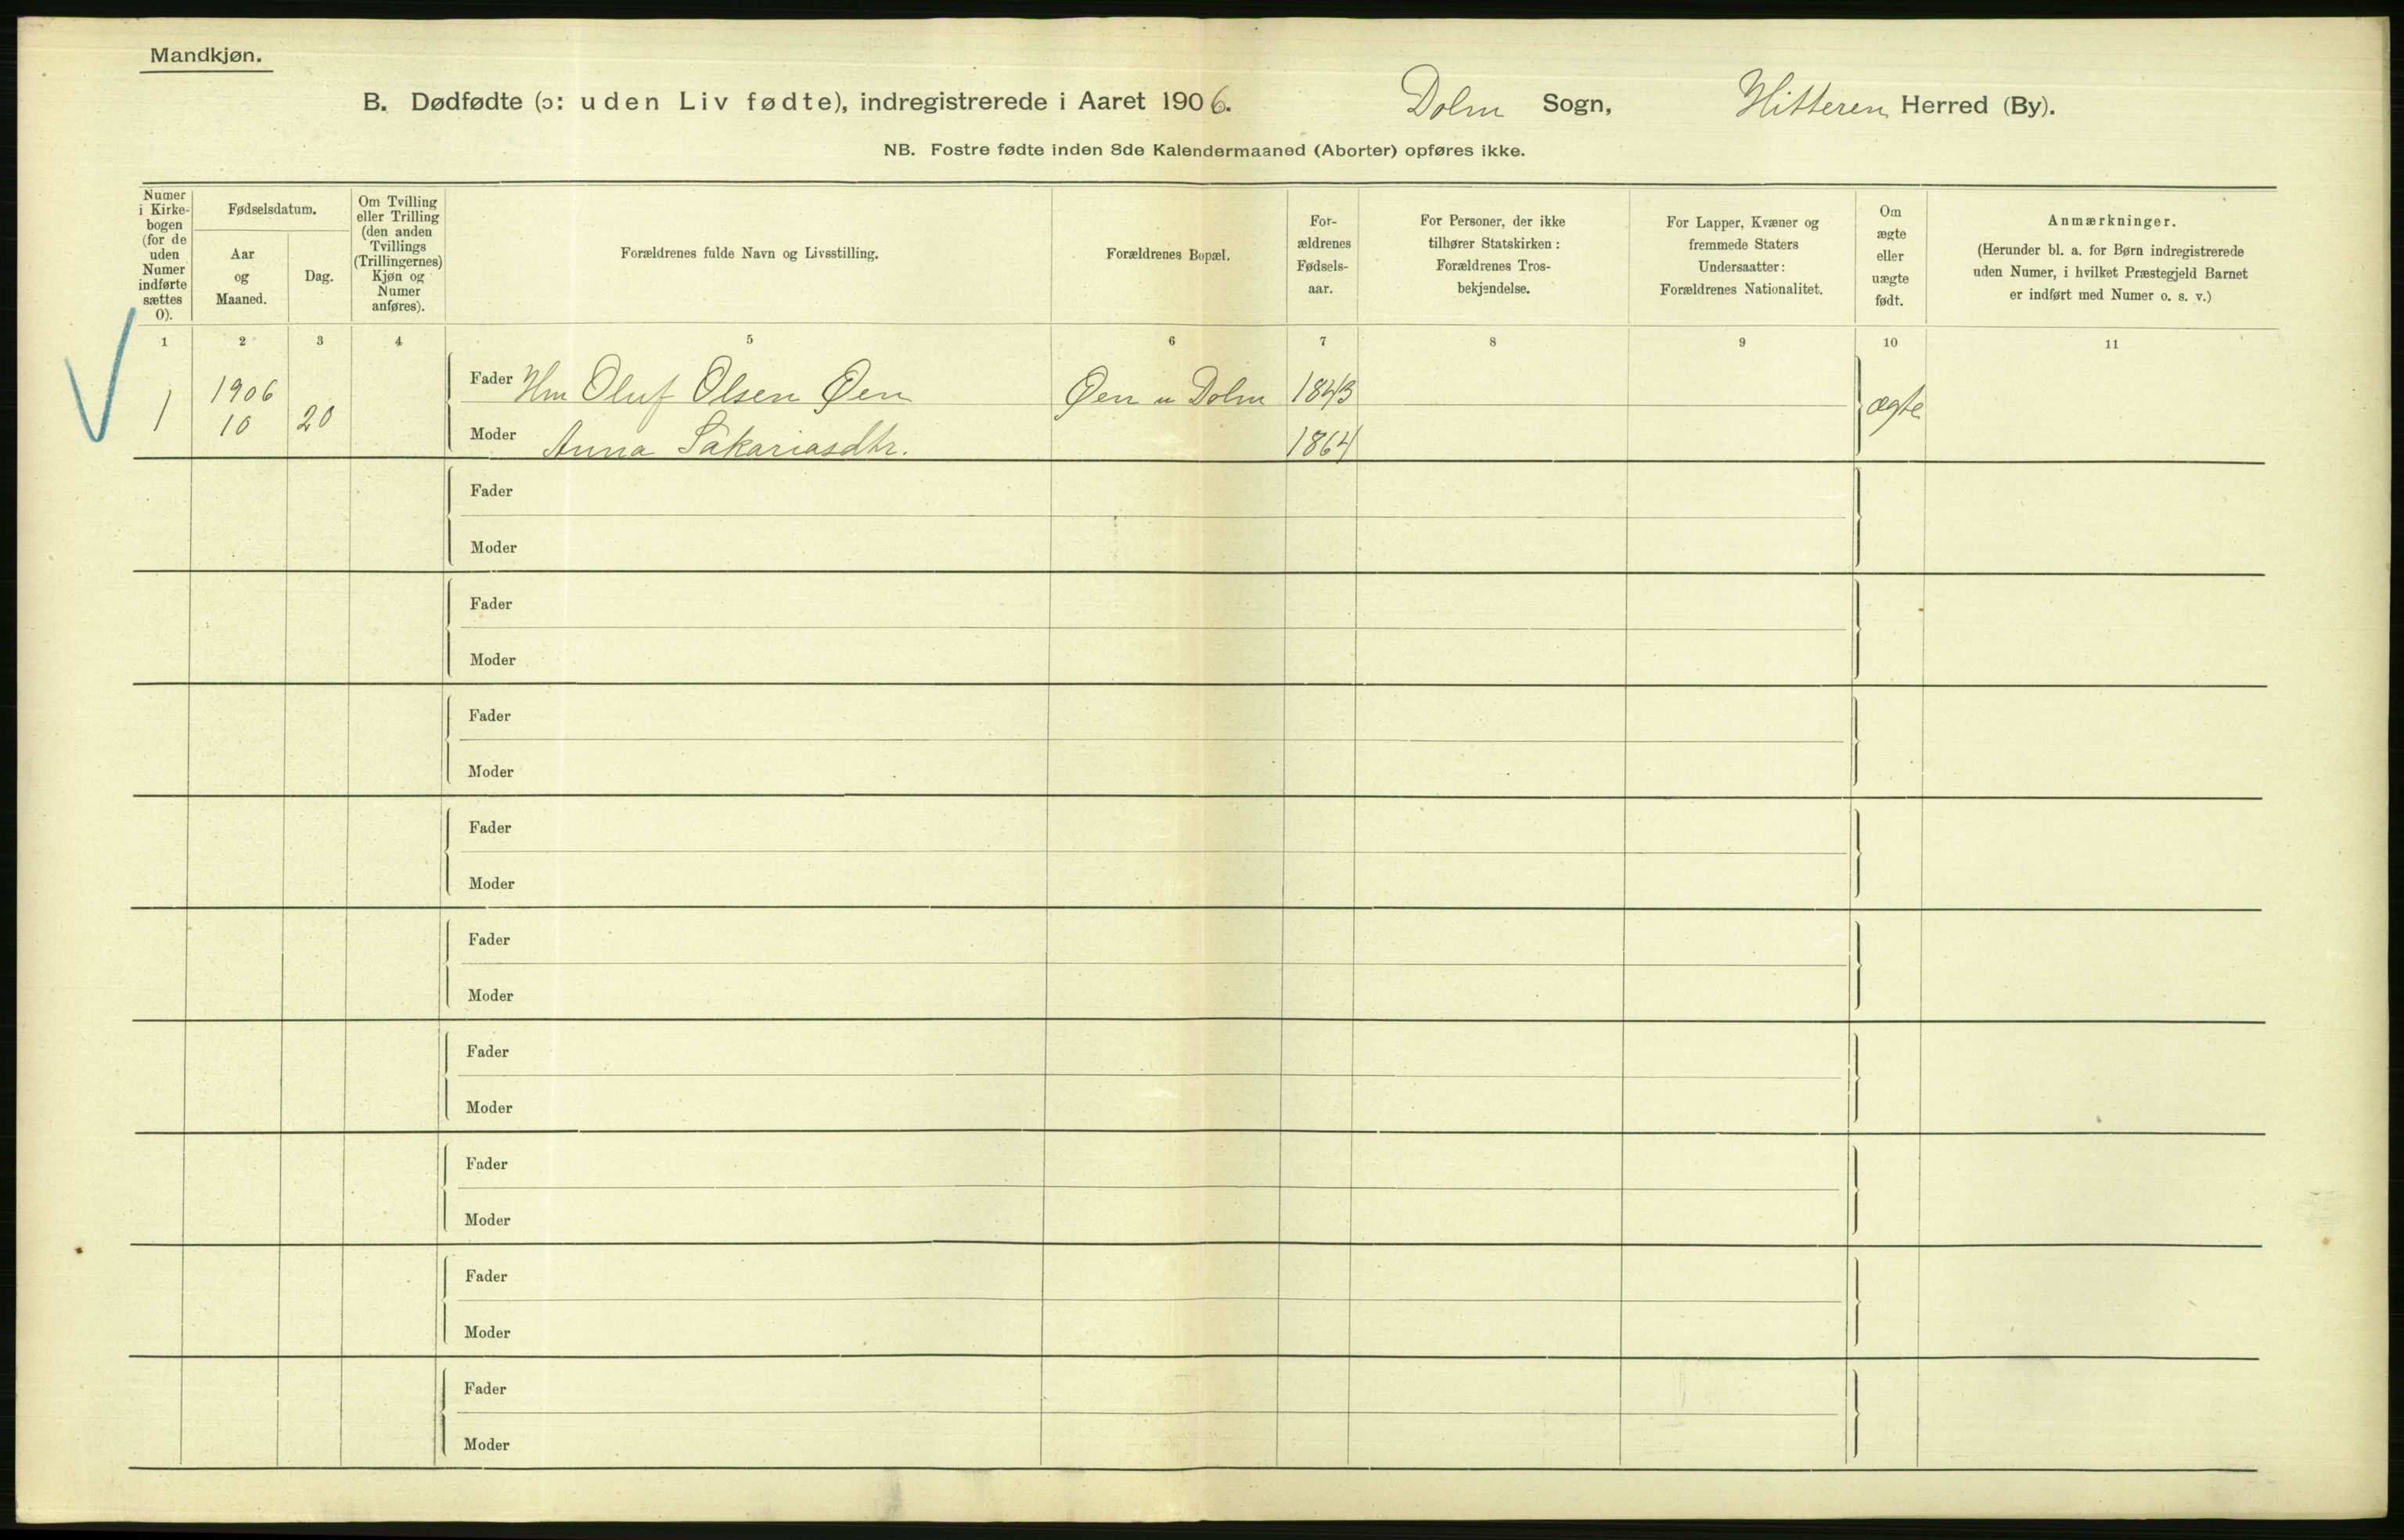 Mandkjøn.
B. Dødfødte (ɔ: uden Liv fødte), indregistrerede i Aaret 1906. Dolm Sogn, Hitteren Herred (By).
NB. Fostre fødte inden 8de Kalendermaaned (Aborter) opføres ikke.
Numer
i Kirke-
bogen
(for de
uden
Numer
indførte
sættes
0).
Fødselsdatum.
Aar
og
Maaned.
Dag.
Om Tvilling
eller Trilling
(den anden
Tvillings
(Trillingernes)
Kjøn og
Numer
anføres).
Forældrenes fulde Navn og Livsstilling.
Forældrenes Bopæl.
For-
ældrenes
Fødsels-
aar.
For Personer, der ikke
tilhører Statskirken:
Forældrenes Tros-
bekjendelse.
For Lapper, Kvæner og
fremmede Staters
Undersaatter:
Forældrenes Nationalitet.
Om
ægte
eller
uægte
født.
Anmærkninger.
(Herunder bl. a. for Børn indregistrerede
uden Numer, i hvilket Præstegjeld Barnet
er indført med Numer o. s. v.)
1 2 3 4 5 6 7 8 9 10 11
1 1906 10 20
Fader Hm Oluf Olsen Øen Øen Dolm 1843 ægte
Moder Anna Sakariasdtr. 1864
Fader
Moder
Fader
Moder
Fader
Moder
Fader
Moder
Fader
Moder
Fader
Moder
Fader
Moder
Fader
Moder
Fader
Moder